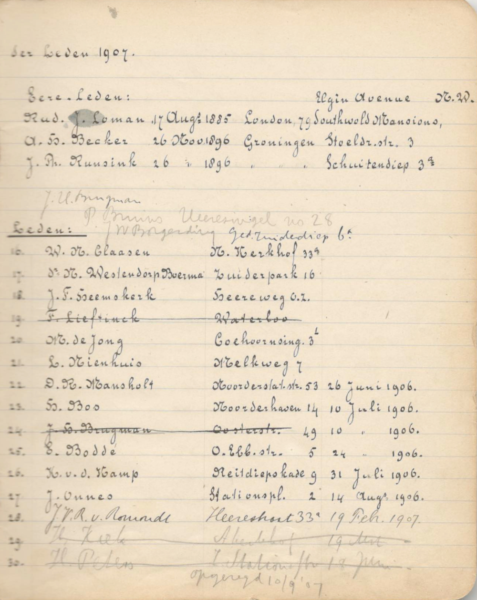 der Leden 1907.
Eere-Leden: Elgin Avenue N.W.
Rud. J. Loman 17 Augt 1885 London, 79 Southwold Mansions,
A. H. Becker 26 Nov 1896 Groningen Stoeldr. str. 3
J. Th. Runsink 26 " 1896 " " Schuitendiep 3a
J. H. Brugman
P Bruins Heeresingel no 28
Leden: J W Borgerding Gedz. Zuiderdiep 6a
16. W. N. Claasen N. Kerkhof 33a
17. Dr N. Westendorp Boerma Zuiderpark 16
18. J. F. Heemskerk Heereweg o.z.
19. F. Liefrinck Waterloo
20. M. de Jong Coehoornsing. 3
21. L. Nienhuis Melkweg 7
22. D. R. Mansholt Noorderstat. str. 53 26 Juni 1906.
23. H. Boo Noorderhaven 14 10 Juli 1906.
24. J. H. Brugman Oosterstr. 49 10 " 1906.
25. E. Bodde O. Ebb. str. 5 24 " 1906.
26. K. v. d. Kamp Reitdiepskade 9 31 Juli 1906.
27. J. Onnes Stationspl. 2 14 Augt 1906.
28. v. Romondt 33a 19 Febr. 1907
29.
30. H. Peters Stationstr 18 Juni
10/9 '07